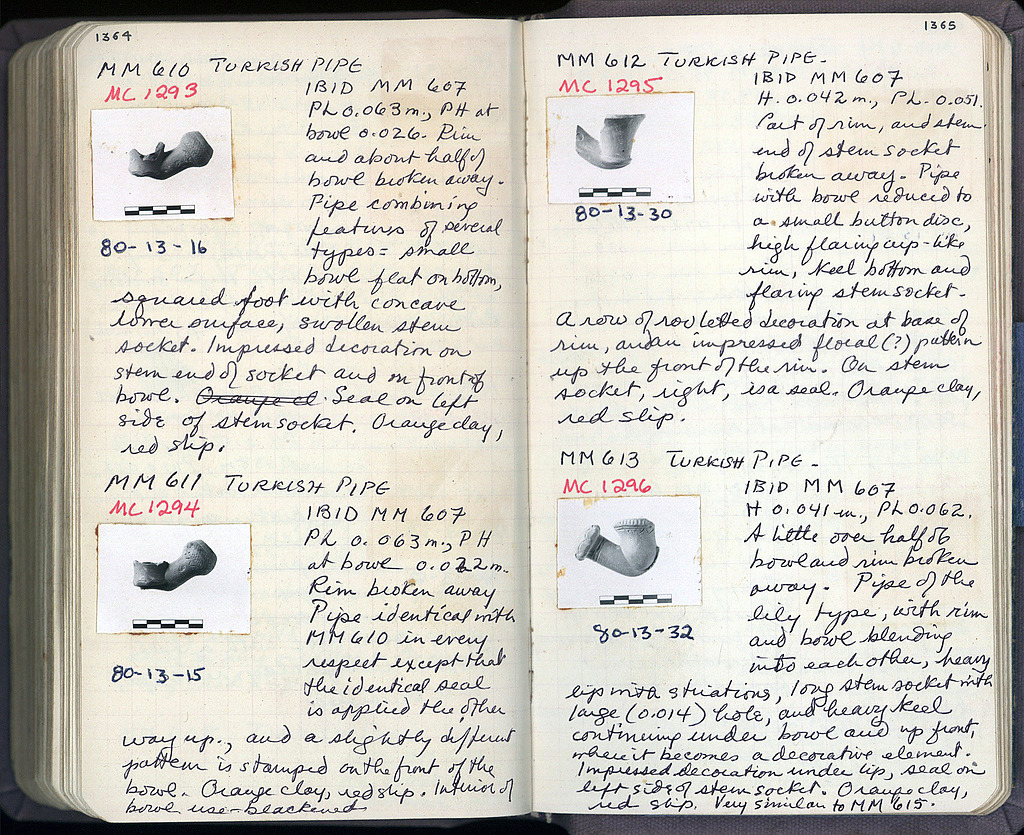 1364
MM 610 TURKISH PIPE
MC 1293
IBID MM 607
PL 0.063m., PH at
bowl 0.026. Rim
and about half of
bowl broken away.
Pipe combining
features of several
types = small
bowl flat on bottom,
80-13-16
squared foot with concave
lower surface, swollen stem
socket. Impressed decoration on
stem end of socket and on front of
bowl. Orange cl. Seal on left
side of stem socket. Orange clay,
red slip.
MM 611 TURKISH PIPE
MC 1294
IBID MM 607
PL 0.063m., PH
at bowl 0.022m.
Rim broken away
Pipe identical with
MM 610 in every
respect except that
the identical seal
is applied the other
80-13-15
way up., and a slightly different
pattern is stamped on the front of the
bowl. Orange clay, red slip. Interior of
bowl use-blackened
1365
MM 612 TURKISH PIPE.
MC 1295
IBID MM 607
H. 0.042m., PL. 0.051.
Part of rim, and stem
end of stem socket
broken away. Pipe
with bowl reduced to
a small button disc,
high flaring cup-like
rim, keel bottom and
flaring stem socket.
80-13-30
A row of rouletted decoration at base of
rim, and an impressed floral (?) pattern
up the front of the rim. On stem
socket, right, is a seal. Orange clay,
red slip.
MM 613 TURKISH PIPE.
MC 1296
IBID MM 607
H 0.041m., PL 0.062.
A little over half of
bowl and rim broken
away. Pipe of the
lily type, with rim
and bowl blending
into each other, heavy
80-13-32
lip with striations, long stem socket with
large (0.014) hole, and heavy keel
continuing under bowl and up front,
where it becomes a decorative element.
Impressed decoration under lip, seal on
left side of stem socket. Orange clay,
red slip. Very similar to MM 615.